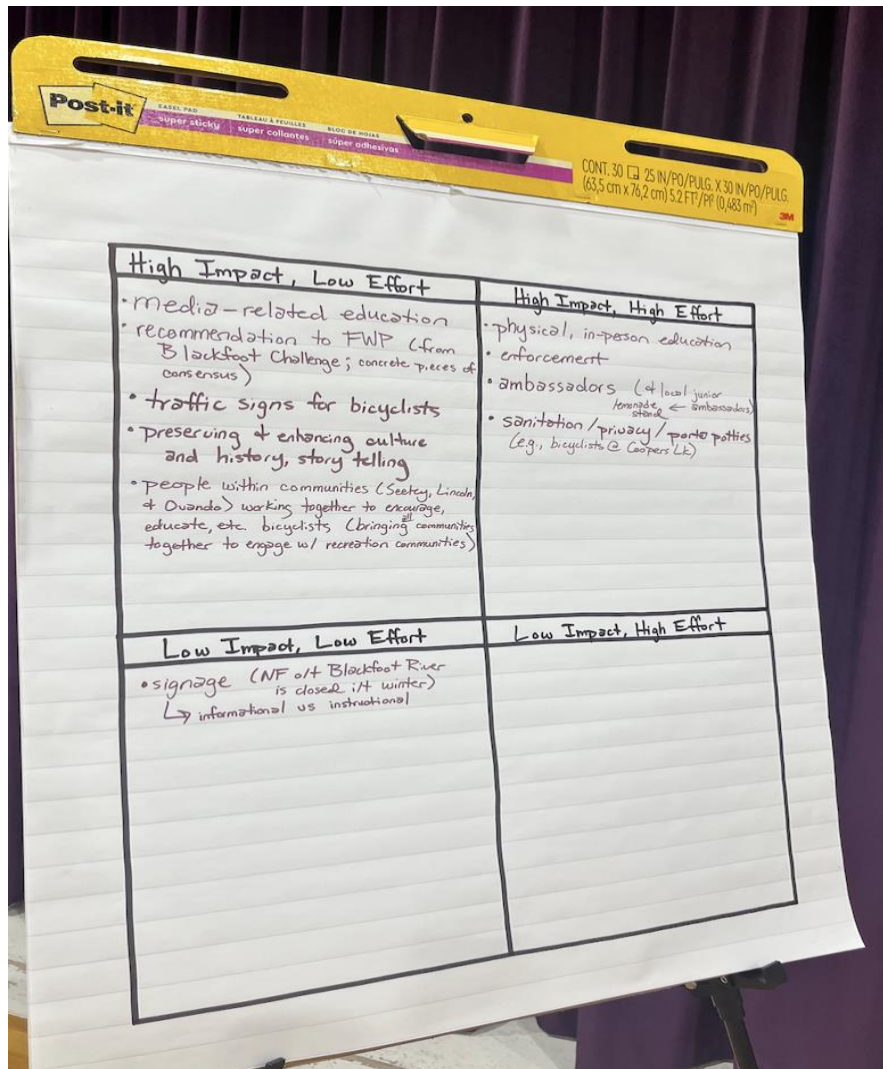 Post-it
EASEL PAD
super sticky
TABLEAU À FEUILLES
super collantes
BLOC DE HOJAS
súper adhesivas
CONT. 30 25 IN/PO/PULG. X 30 IN/PO/PULG.
(63,5 cm x 76,2 cm) 5.2 FT²/PI² (0,483 m²)
3M
High Impact, Low Effort
• media-related education
• recommendation to FWP (from
Blackfoot Challenge; concrete pieces of
consensus)
• traffic signs for bicyclists
• preserving & enhancing culture
and history, story telling
• people within communities (Seeley, Lincoln,
& Ovando) working together to encourage,
educate, etc. bicyclists (bringing all communities
together to engage w/ recreation communities)
High Impact, High Effort
• physical, in-person education
• enforcement
• ambassadors (& local junior
lemonade ← ambassadors)
stand
• sanitation / privacy / porto potties
(e.g., bicyclists @ Coopers Lk)
Low Impact, Low Effort
• signage (NF o/t Blackfoot River
is closed i/t winter)
↳ informational vs instructional
Low Impact, High Effort